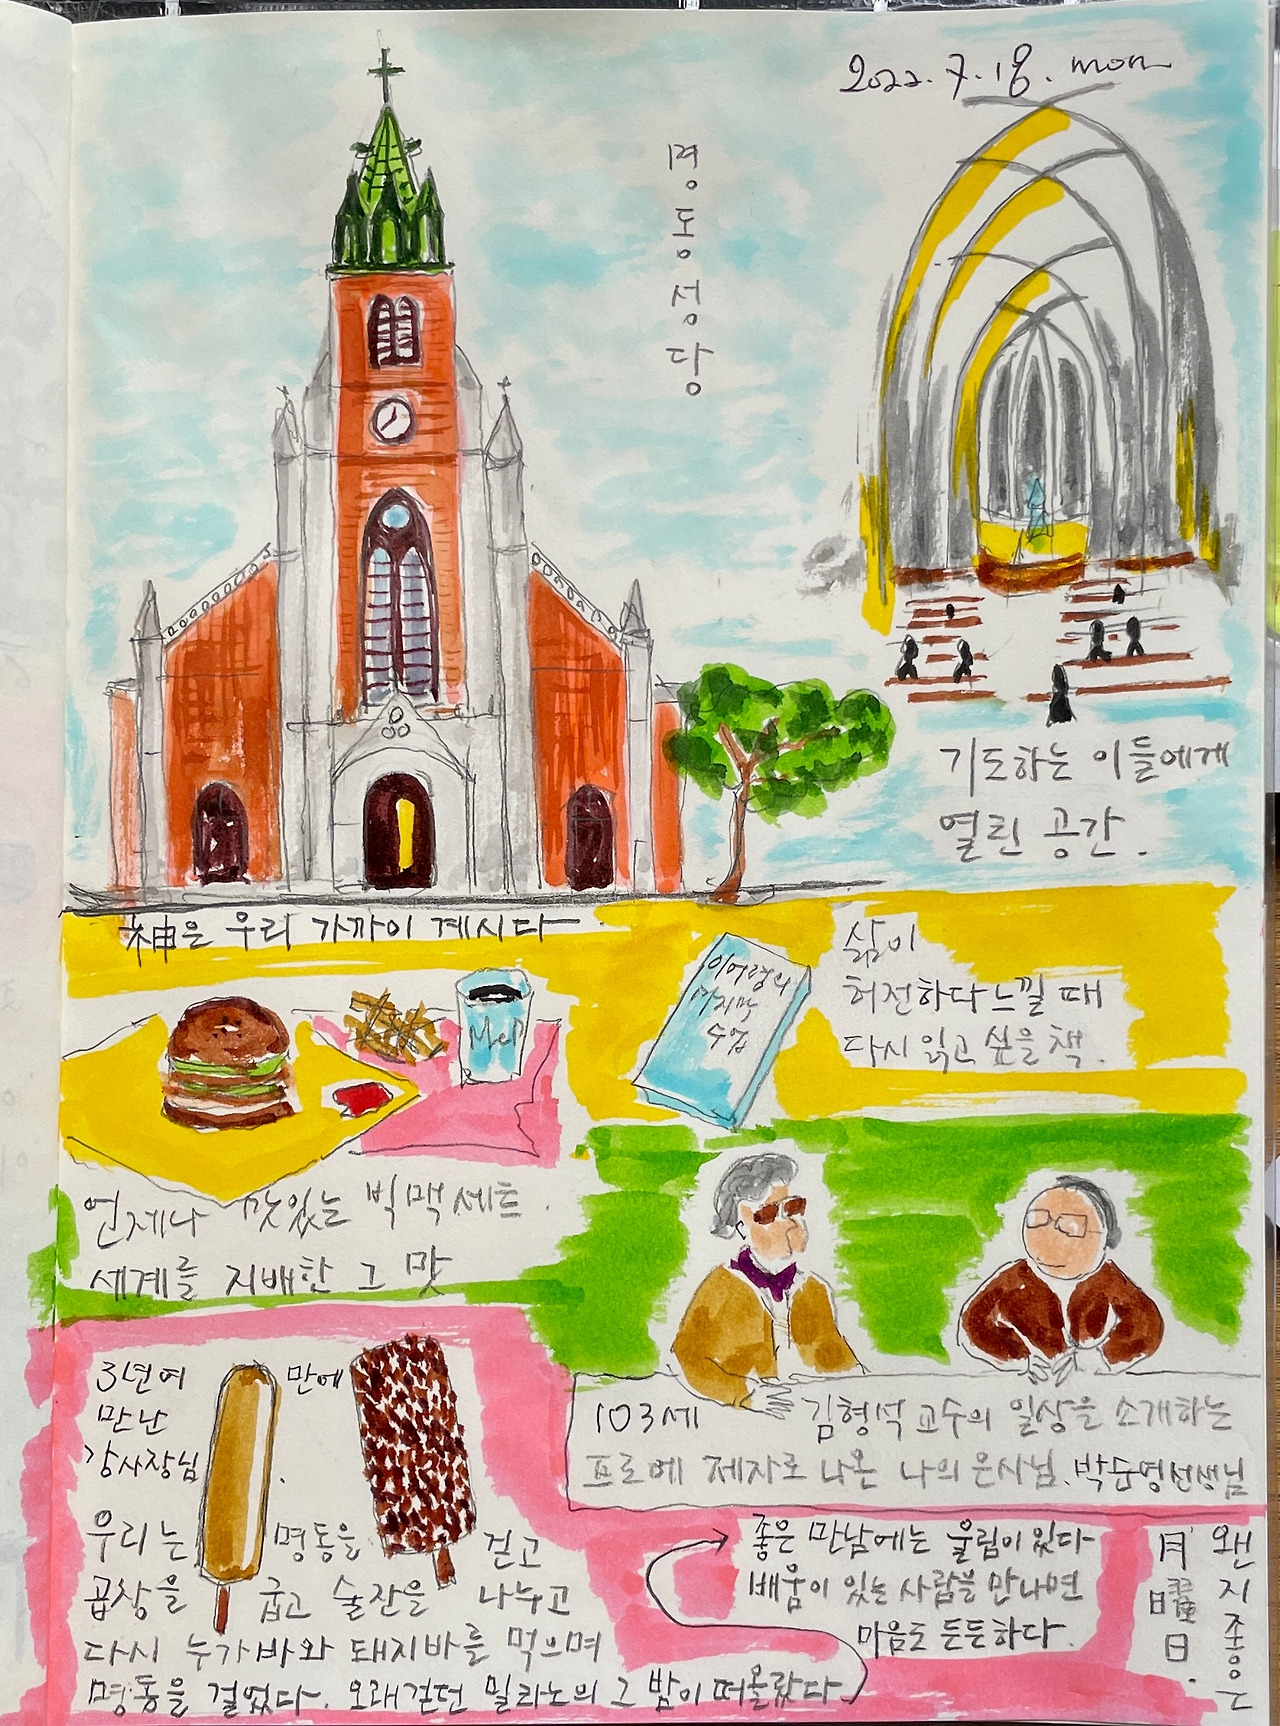 2022.7.18. mon
명동성당
기도하는 이들에게
열린 공간.
神은 우리 가까이 계시다
이어령의
마지막
수업
삶이
허전하다 느낄 때
다시 읽고 싶은 책.
McD
언제나 맛있는 빅맥세트.
세계를 지배한 그 맛
103세 김형석 교수의 일상을 소개하는
프로에 제자로 나온 나의 은사님. 박순영선생님
3년여 만에
만난
강사장님.
우리는 명동을 걷고
곱창을 굽고 술잔을 나누고
다시 누가바와 돼지바를 먹으며
명동을 걸었다. 오래 걷던 밀라노의 그 밤이 떠올랐다.
좋은 만남에는 울림이 있다
배움이 있는 사람을 만나면
마음도 든든하다.
왠지 좋은
月曜日.